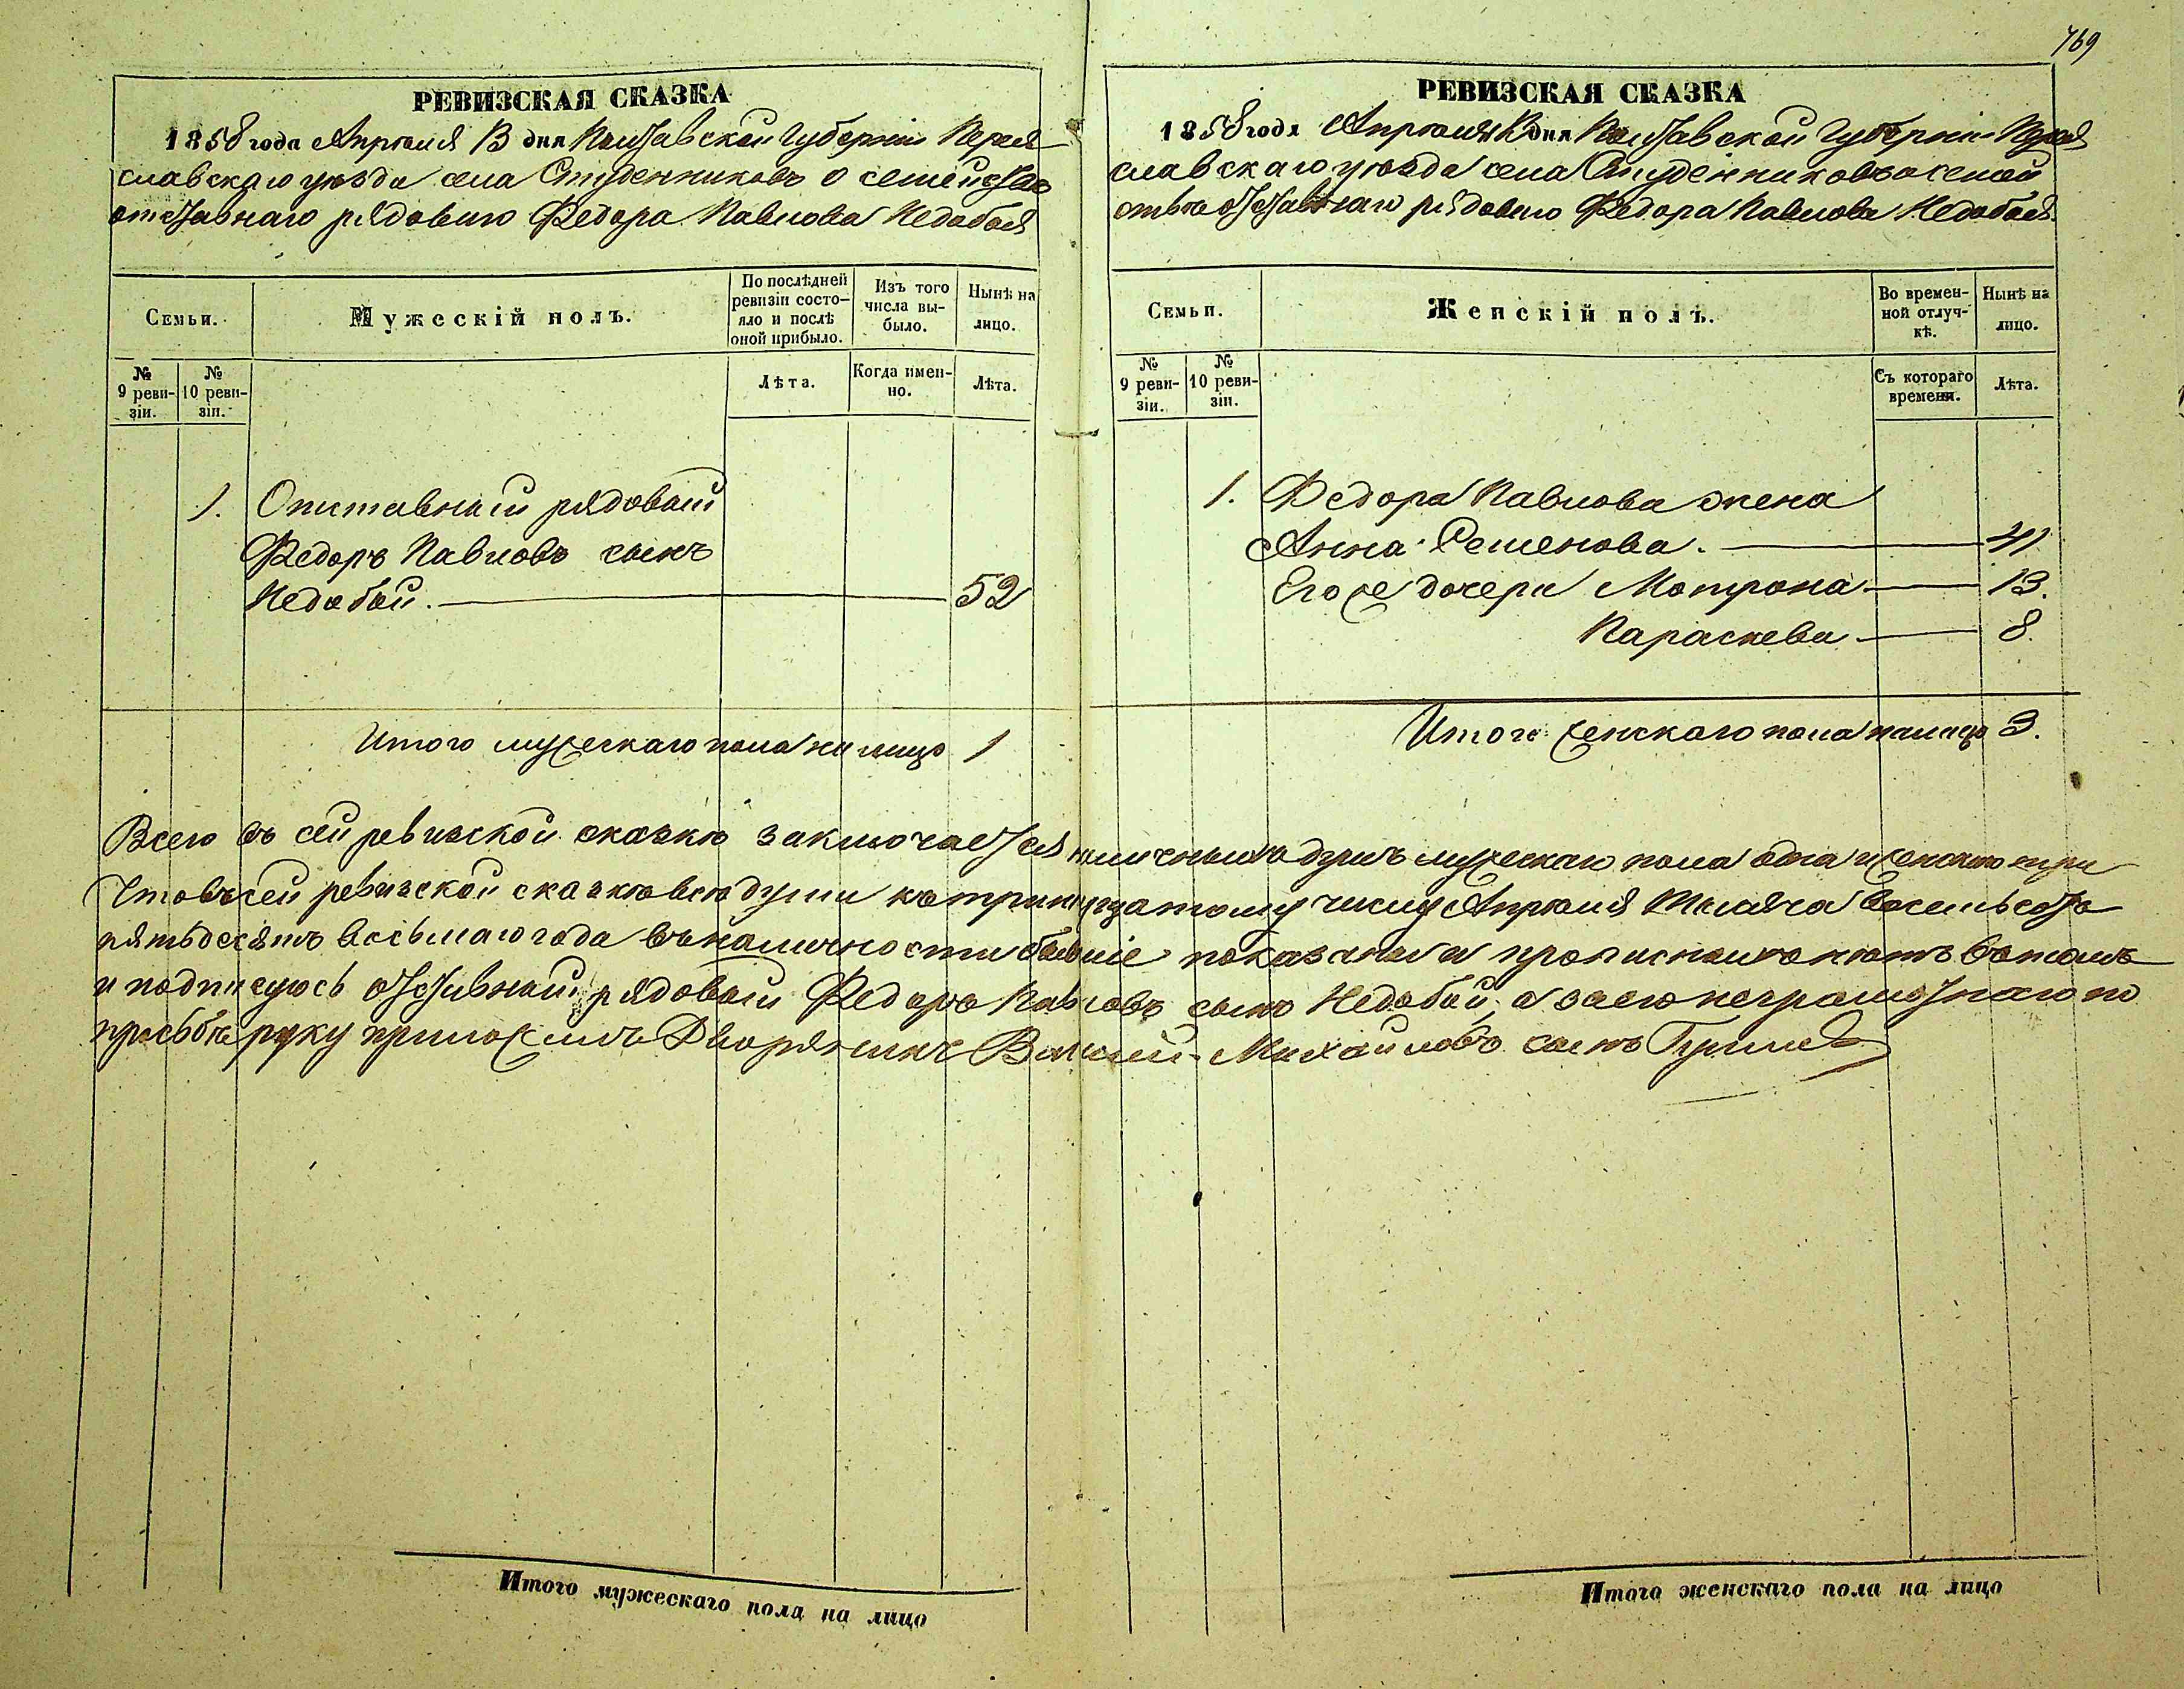 769
РЕВИЗСКАЯ СКАЗКА
1858 года Апрѣля 13 дня Полтавской Губерніи Перея
славскаго уѣзда села Студенниковъ о семействѣ
отставнаго рядоваго Федора Павлова Недобоя
Семьи.
Мужескій полъ.
По послѣдней
ревизіи состо-
яло и послѣ
оной прибыло.
Изъ того
числа вы-
было.
Нынѣ на
лицо.
№
9 реви-
зіи.
№
10 реви-
зіи.
Лѣта.
Когда имен-
но.
Лѣта.
1. Отставный рядовый
Федоръ Павловъ сынъ
Недобой. 52
Итого мужескаго пола на лицо 1
РЕВИЗСКАЯ СКАЗКА
1858 года Апрѣля 13 дня Полтавской Губерніи Перея
славскаго уѣзда села Студенниковъ о семей
ствѣ отставнаго рядоваго Федора Павлова Недобоя
Семьи.
Женскій полъ.
Во времен-
ной отлуч-
кѣ.
Нынѣ на
лицо.
№
9 реви-
зіи.
№
10 реви-
зіи.
Съ котораго
времени.
Лѣта.
1. Федора Павлова жена
Анна Семенова. 41
Его же дочери Мотрона 13.
Параскева 8.
Итого женскаго пола на лицо 3.
Всего въ сей ревизской сказкѣ заключается наличныхъ душъ мужескаго пола одна и женскаго три
Что въ сей ревизской сказкѣ всѣ души къ тринадцатому числу Апрѣля Тысяча восемьсотъ
пятьдесятъ восьмаго года въ наличности бывшіе показаны и прописныхъ нѣтъ въ томъ
и подписуюсь отставный рядовый Федоръ Павловъ сынъ Недобой, а за его неграмотнаго по
просьбѣ руку приложилъ Дворянинъ Михайловъ сынъ
Итого мужескаго пола на лицо
Итого женскаго пола на лицо